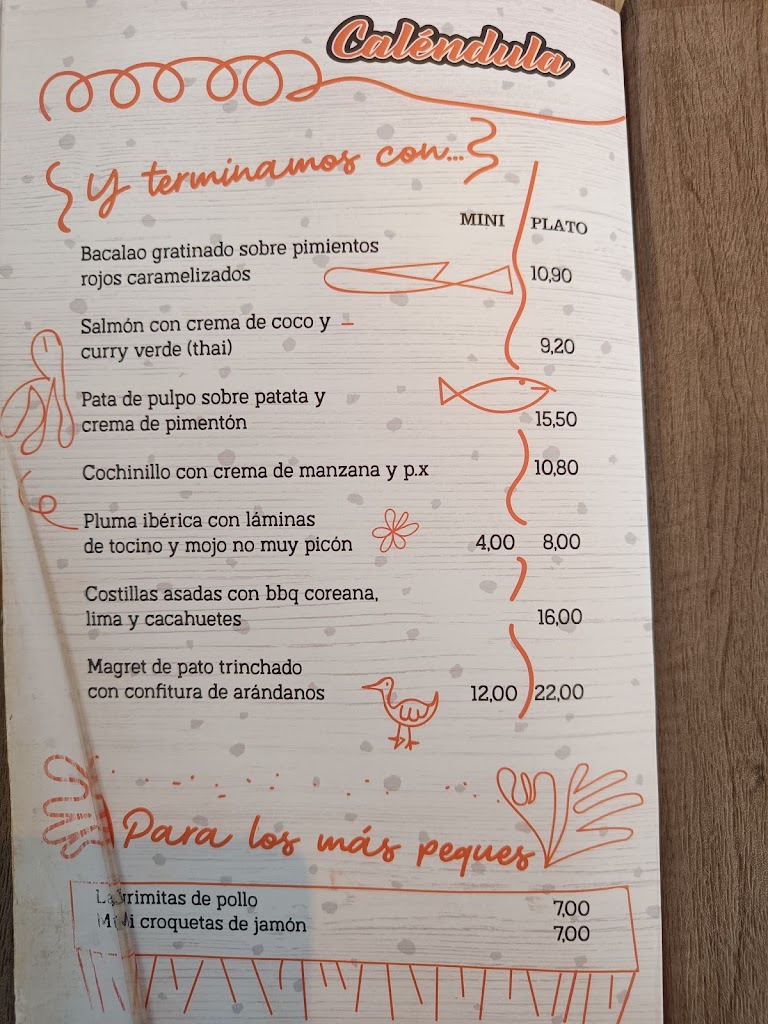 Caléndula
Y terminamos con...
MINI PLATO
Bacalao gratinado sobre pimientos
rojos caramelizados 10,90
Salmón con crema de coco y
curry verde (thai) 9,20
Pata de pulpo sobre patata y
crema de pimentón 15,50
Cochinillo con crema de manzana y p.x 10,80
Pluma ibérica con láminas
de tocino y mojo no muy picón 4,00 8,00
Costillas asadas con bbq coreana,
lima y cacahuetes 16,00
Magret de pato trinchado
con confitura de arándanos 12,00 22,00
Para los más peques
Lagrimitas de pollo 7,00
Mini croquetas de jamón 7,00